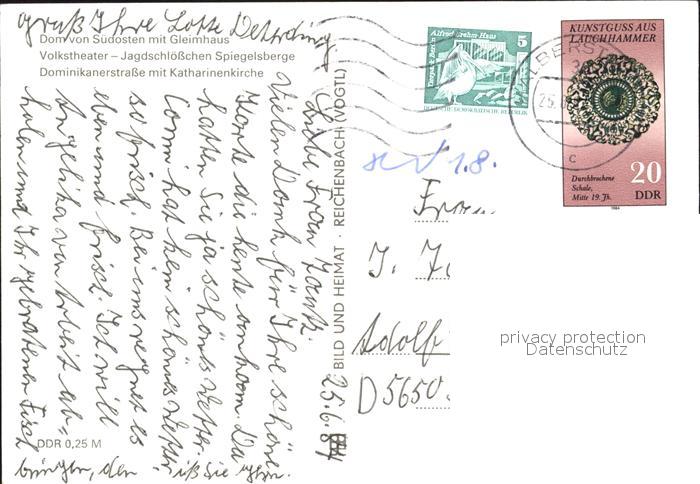 Dom von Südosten mit Gleimhaus
Volkstheater – Jagdschlößchen Spiegelsberge
Dominikanerstraße mit Katharinenkirche
25.6.
Liebe Frau
Vielen Dank für Ihre schöne
Karte die heute ankam. Da
hatten Sie ja schönes Wetter.
Conni hat kein schönes Wetter
so frisch. Bei uns regnet es
eben und frisch. Ich will
Angelika von Arbeit ab-
holen und Ihr gebratenen Fisch
bringen, den iß Sie gern.
Gruß Ihre Lotte
BILD UND HEIMAT · REICHENBACH (VOGTL)
DDR 0,25 M
Alfred Brehm Haus
Tierpark Berlin
5
DEUTSCHE DEMOKRATISCHE REPUBLIK
KUNSTGUSS AUS
LAUCHHAMMER
20
DDR
Durchbrochene
Schale,
Mitte 19. Jh.
1984
LBERST
25.
c
1.8.
Frau
J.
Adolf
D 5650
privacy protection
Datenschutz